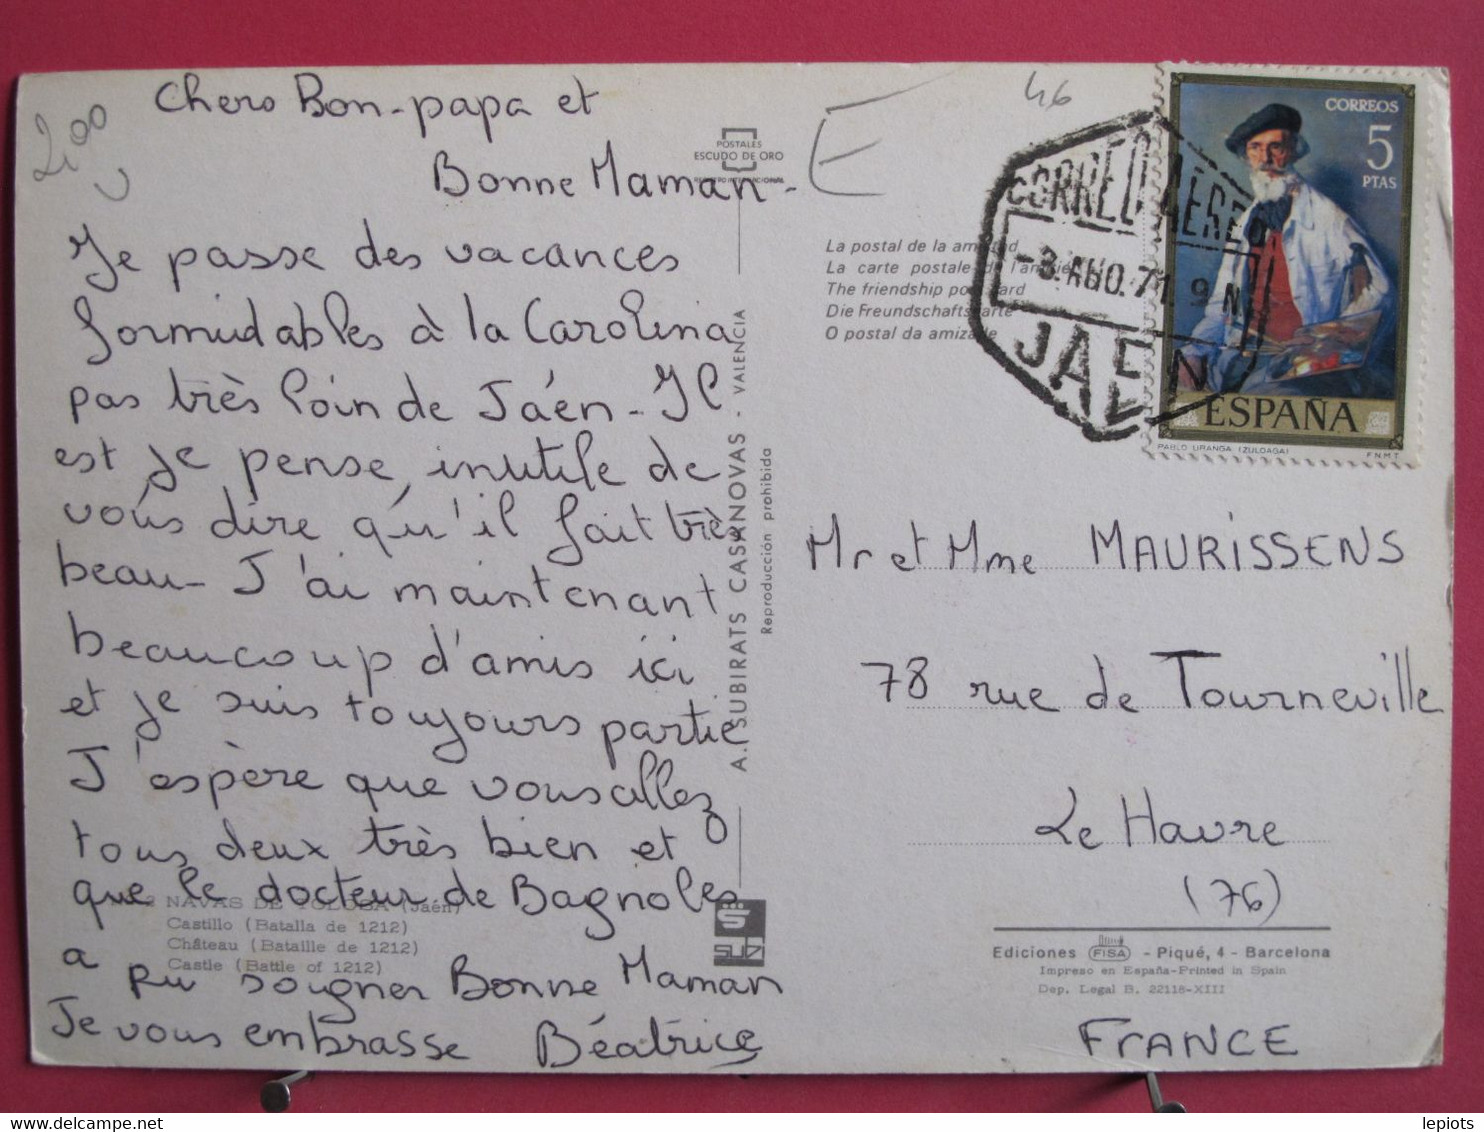 2,00
Chers Bon-papa et
Bonne Maman-
Je passe des vacances
formidables à la Carolina
pas très loin de Jáen- Il
est je pense, inutile de
vous dire qu'il fait très
beau- J'ai maintenant
beaucoup d'amis ici
et je suis toujours partie
J'espère que vous allez
tous deux très bien et
que le docteur de Bagnoles
a pu soigner Bonne Maman
Je vous embrasse Béatrice
NAVAS DE TOLOSA (Jaén)
Castillo (Batalla de 1212)
Château (Bataille de 1212)
Castle (Battle of 1212)
POSTALES
ESCUDO DE ORO
REGISTRO INTERNACIONAL
A. SUBIRATS CASANOVAS - VALENCIA
Reproducción prohibida
SUDI
E
46
La postal de la amistad
La carte postale de l'amitié
The friendship postcard
Die Freundschaftskarte
O postal da amizade
CORREO AEREO
-3.AGO.71. 9N.
JAEN
CORREOS
5
PTAS
ESPAÑA
PABLO URANGA (ZULOAGA)
F.N.M.T.
Mr et Mme MAURISSENS
78 rue de Tourneville
Le Havre
(76)
Ediciones FISA - Piqué, 4 - Barcelona
Impreso en España-Printed in Spain
Dep. Legal B. 22116-XIII
FRANCE
lepiots